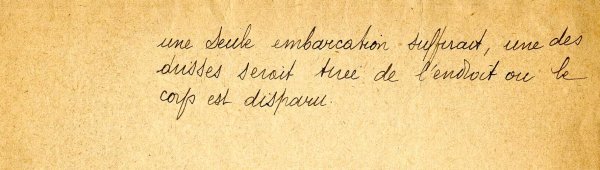 une seule embarcation suffirait, une des
drisses serait tirée de l'endroit ou le
corps est disparu.